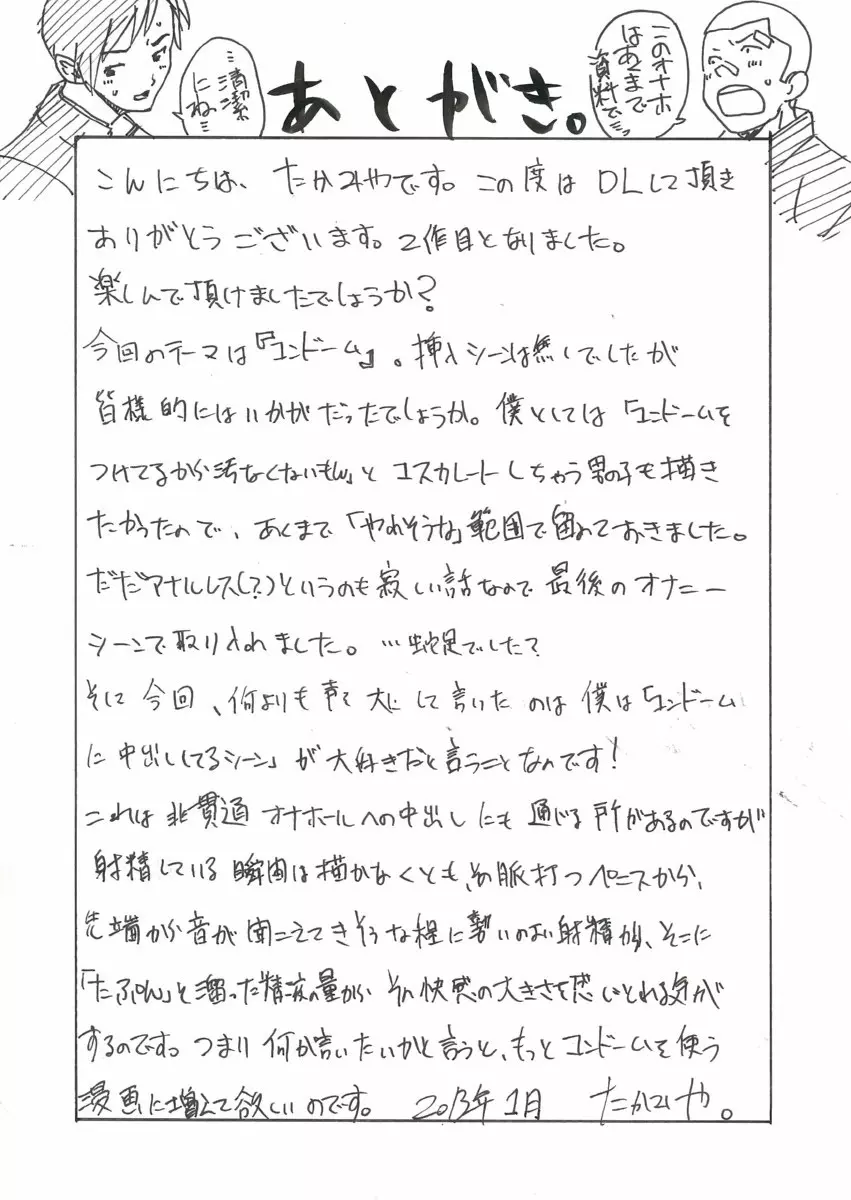 あとがき。
このオナホ
はあくまで
資料で…
…清潔
にね…
こんにちは、たかみやです。この度はDLして頂き
ありがとうございます。2作目となりました。
楽しんで頂けましたでしょうか?
今回のテーマは『コンドーム』。挿入シーンは無しでしたが
皆様的にはいかがだったでしょうか。僕としては「コンドームを
つけてるから汚なくないもん」とエスカレートしちゃう男の子も描き
たかったので、あくまで「やれそうな」範囲で留めておきました。
だだアナルレス(?)というのも寂しい話なので最後のオナニー
シーンで取り入れました。…蛇足でした?
そして今回、何よりも声を大にして言いたいのは僕は「コンドーム
に中出ししてるシーン」が大好きだと言うことなのです!
これは非貫通オナホールへの中出しにも通じる所があるのですが
射精している瞬間は描かなくとも、その脈打つペニスから、
先端から音が聞こえてきそうな程に勢いのよい射精から、そこに
「たぷん」と溜った精液の量から その快感の大きさを感じとれる気が
するのです。つまり何が言いたいかと言うと、もっとコンドームを使う
漫画に増えて欲しいのです。 2013年1月 たかみや。